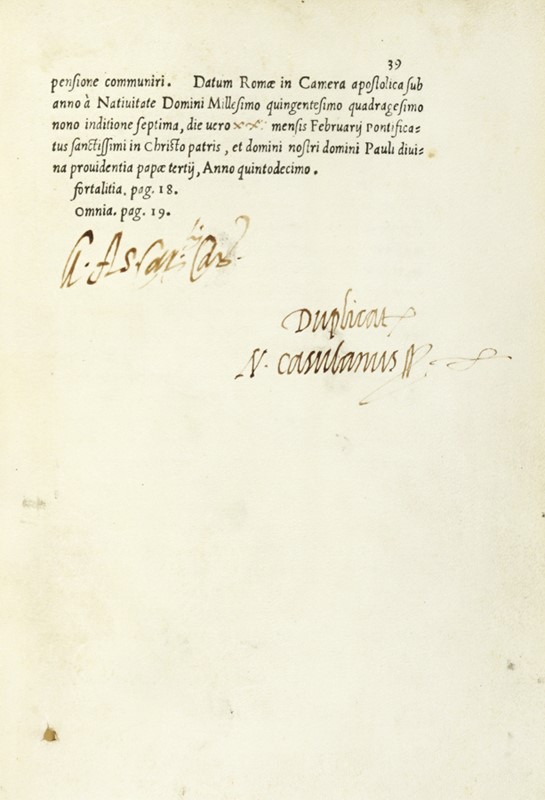 39
penſione communiri. Datum Romæ in Camera apoſtolica ſub
anno à Natiuitate Domini Milleſimo quingenteſimo quadrageſimo
nono inditione ſeptima, die uero xx. menſis Februarij pontifica=
tus ſanctiſſimi in Chriſto patris, et domini noſtri domini Pauli diui=
na prouidentia papæ tertij, Anno quintodecimo.
fortalitia. pag. 18.
Omnia. pag. 19.
G. As. Car. Cam.
Duplicat
N. Casulanus